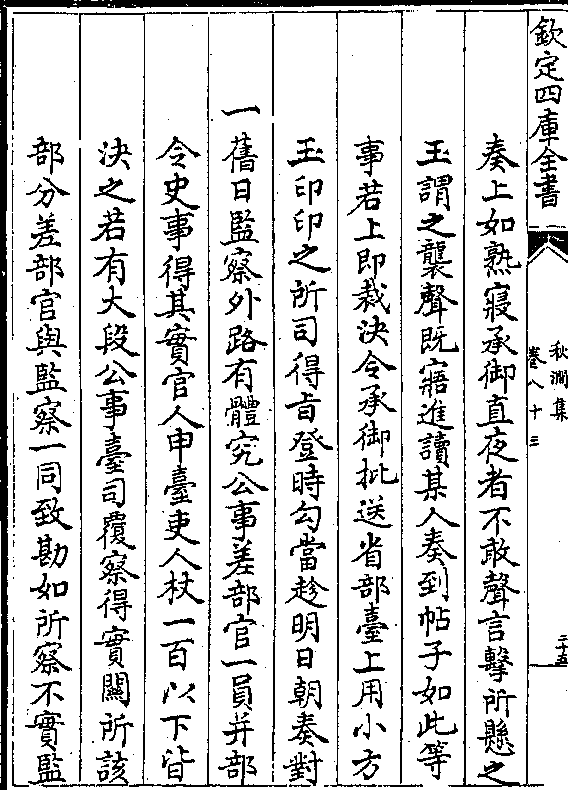 欽定四庫全書
秋澗集
卷八十三
二十五
奏上如熟寢承御直夜者不敢聲言擊所懸之
玉謂之襲聲既寤進讀某人奏到帖子如此等
事若上即裁決令承御批送省部臺上用小方
玉印印之所司得旨登時勾當趁明日朝奏對
一舊日監察外路有體究公事差部官一員并部
令史事得其實官人申臺吏人杖一百以下皆
決之若有大段公事臺司覆察得實關所該
部分差部官與監察一同致勘如所察不實監